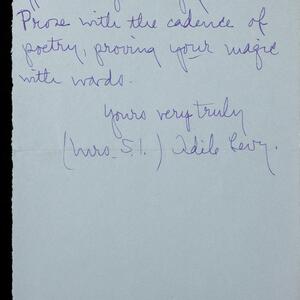 Prose with the cadence of
poetry, proving your magic
with words.
Yours very truly
(Mrs. S.I.) Adele Levy.